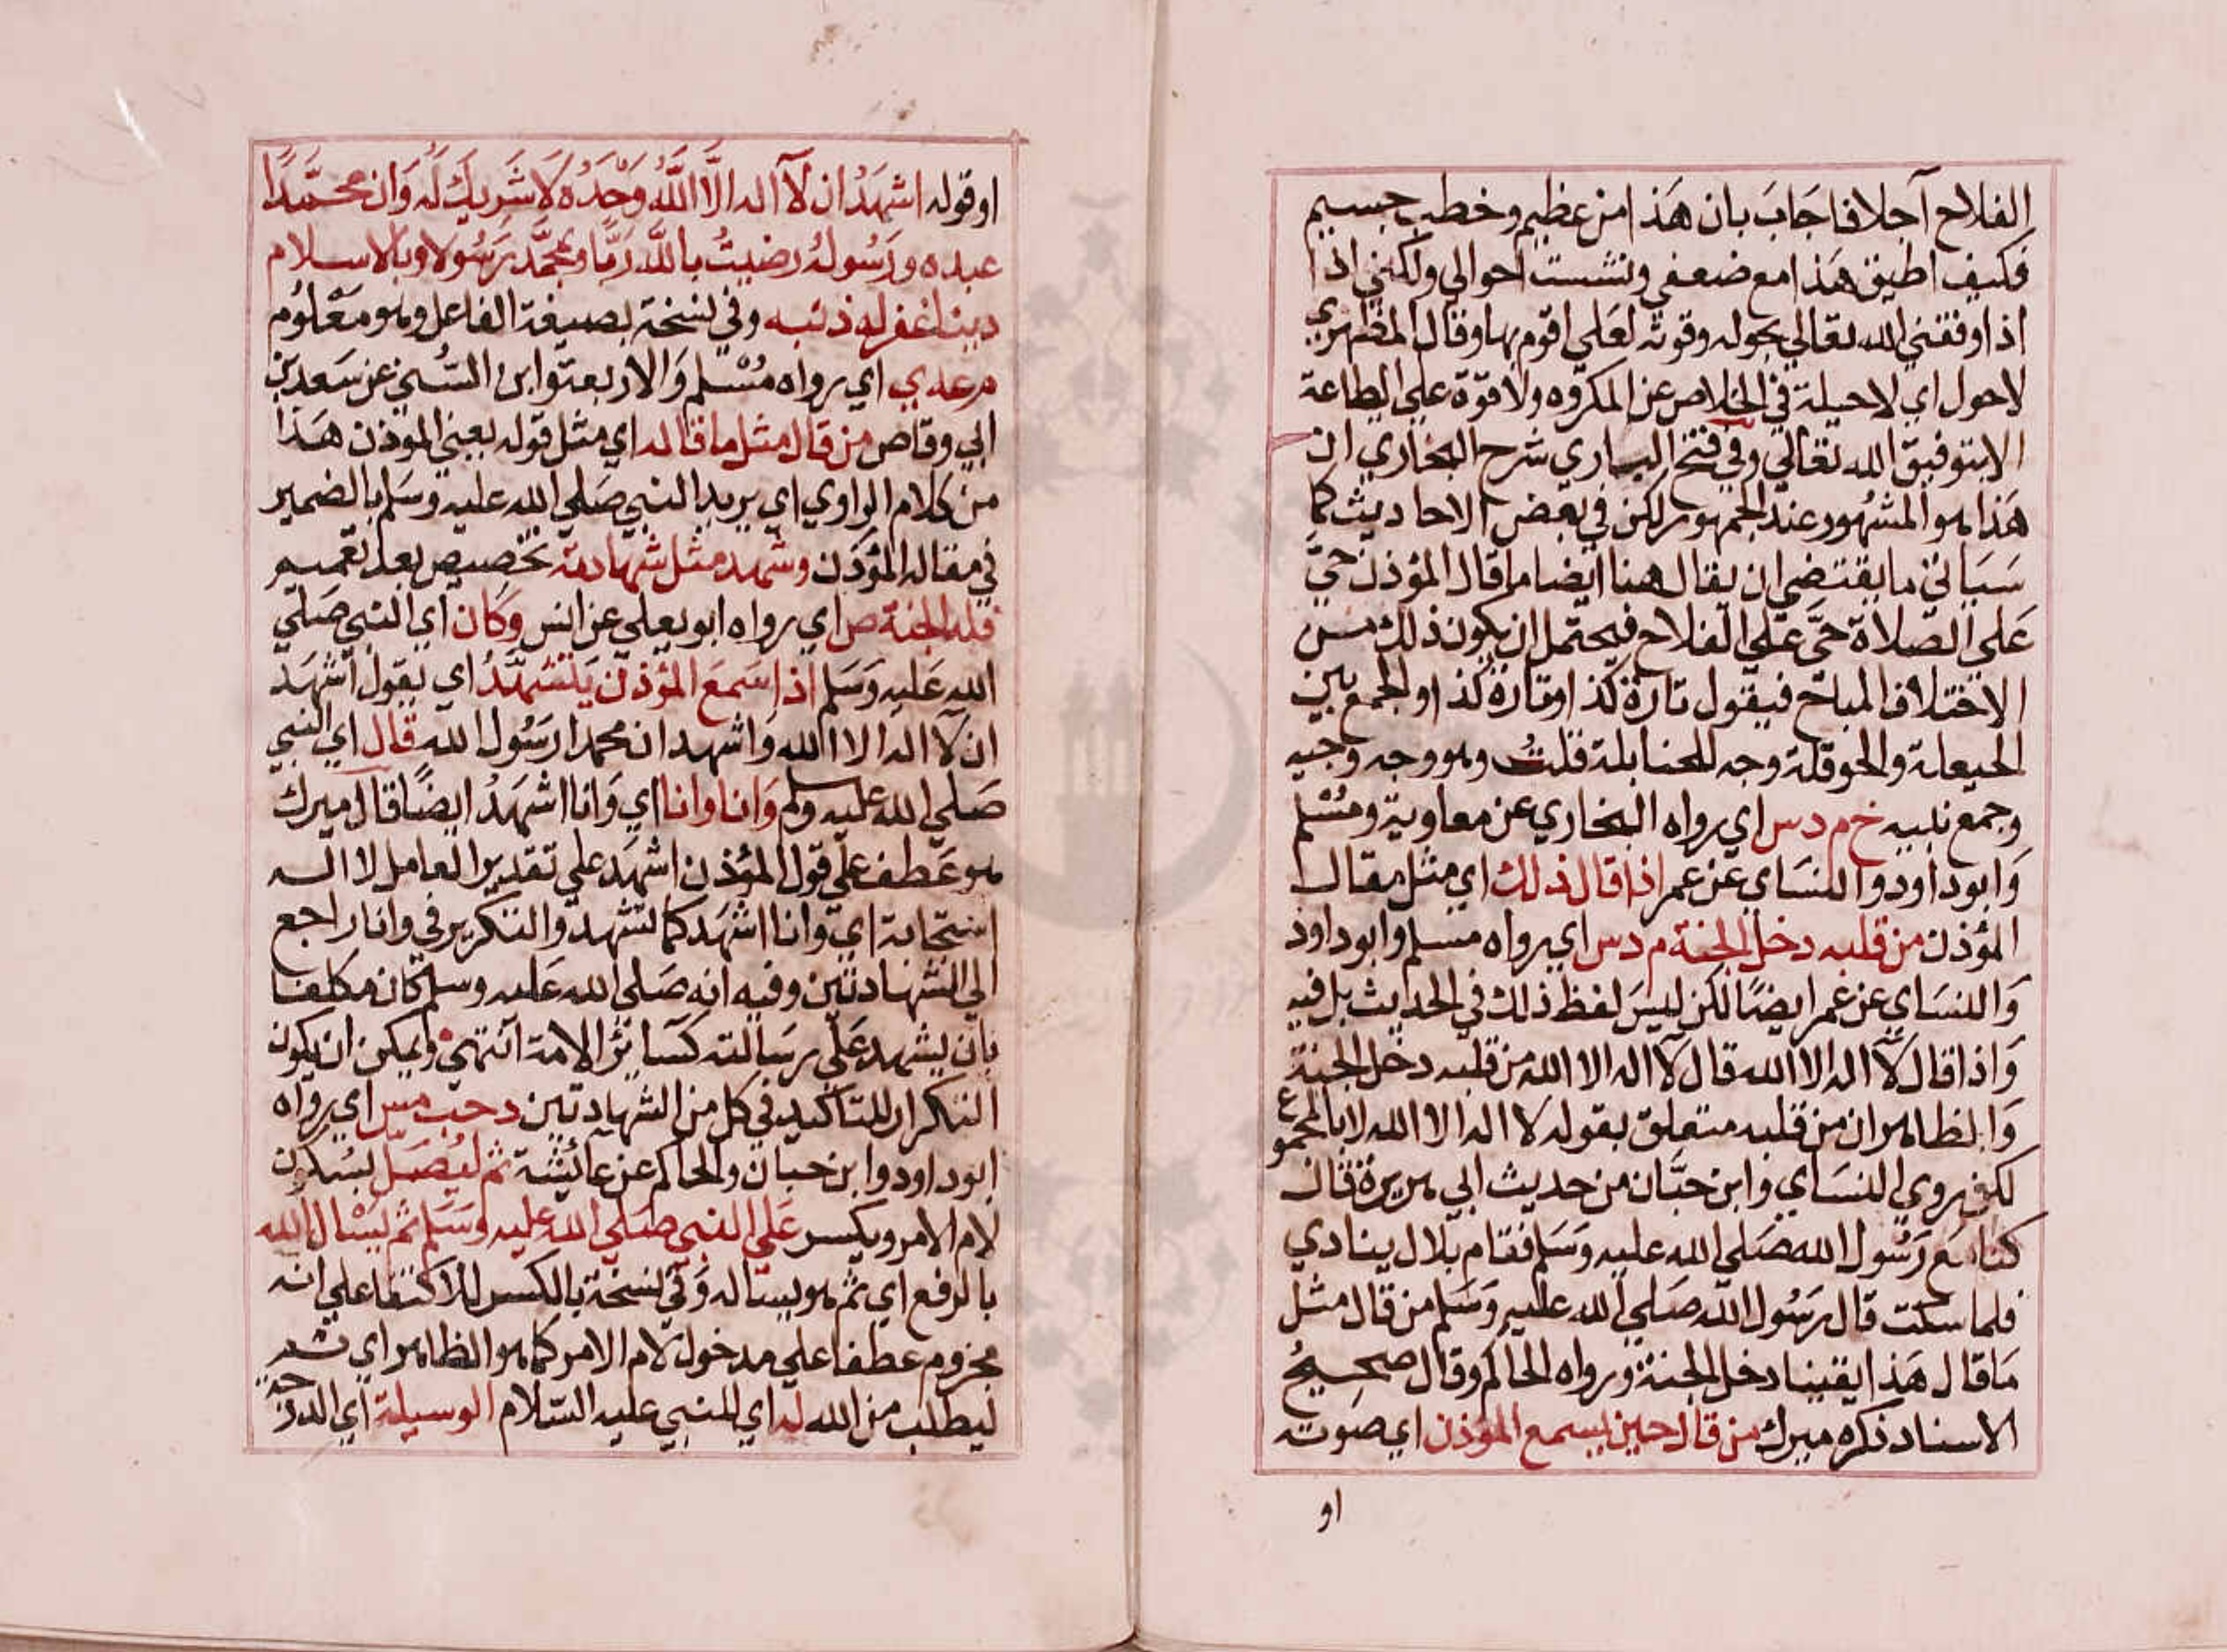 الفلاح آجلا فاجاب بان هذا امر عظيم وخطب جسيم
فكيف اطيق هذا مع ضعفي وتشتت احوالي ولكني اذا
اذا وفقني الله تعالي بحوله وقوته لعلي اقوم بها وقال المظهري
لاحول اي لاحيلة في الخلاص عن المكروه ولا قوة علي الطاعة
الا بتوفيق الله تعالي وفي فتح الباري شرح البخاري ان
هذا هو المشهور عند الجمهور لكن في بعض الاحاديث كما
سياتي ما يقتضي ان يقال هنا ايضا ما قال المؤذن حي
علي الصلاة حي علي الفلاح فيحتمل ان يكون ذلك من
الاختلاف المباح فيقول تارة كذا وتارة كذا والجمع بين
الحيعلة والحوقلة وجه للحنابلة قلت وهو وجه وجيه
وجمع نبيه خ م د س اي رواه البخاري عن معاوية ومسلم
وابوداود والنساي عن عمر اذا قال ذلك اي مثل مقال
المؤذن من قلبه دخل الجنة م د س اي رواه مسلم وابوداود
والنساي عن عمر ايضا لكن ليس لفظ ذلك في الحديث بل فيه
واذا قال لا اله الا الله قال لا اله الا الله من قلبه دخل الجنة
والظاهر ان من قلبه متعلق بقوله لا اله الا الله لا بالمجموع
لكن روي النساي وابن حبان من حديث ابي هريرة قال
كنا مع رسول الله صلي الله عليه وسلم فقام بلال ينادي
فلما سكت قال رسول الله صلي الله عليه وسلم من قال مثل
ما قال هذا يقينا دخل الجنة ورواه الحاكم وقال صحيح
الاسناد ذكره ميرك من قال حين يسمع المؤذن اي صوته
او
او قوله اشهد ان لا اله الا الله وحده لا شريك له وان محمدا
عبده ورسوله رضيت بالله ربا وبمحمد رسولا وبالاسلام
دينا غفر له ذنبه وفي نسخة بصيغة الفاعل وهو معلوم
م عه ي اي رواه مسلم والاربعة وابن السني عن سعد بن
ابي وقاص من قال مثل ما قاله اي مثل قوله يعني الموذن هذا
من كلام الراوي اي يريد النبي صلي الله عليه وسلم بالضمير
في مقاله المؤذن وشهد مثل شهادته تخصيص بعد تعميم
فله الجنة ص اي رواه ابو يعلي عن انس وكان اي النبي صلي
الله عليه وسلم اذا سمع المؤذن يتشهد اي يقول اشهد
ان لا اله الا الله واشهد ان محمدا رسول الله قال اي النبي
صلي الله عليه وسلم وانا وانا اي وانا اشهد ايضا قال ميرك
هو عطف علي قول المؤذن اشهد علي تقدير العامل لا اله
استجابة اي وانا اشهد كما تشهد والتكرير في وانا راجع
الي الشهادتين وفيه انه صلي الله عليه وسلم كان مكلفا
بان يشهد علي رسالته كسائر الامة انتهي ويمكن ان يكون
التكرار للتاكيد في كل من الشهادتين د حب مس اي رواه
ابوداود وابن حبان والحاكم عن عائشة ثم ليصل بسكون
لام الامر ويكسر علي النبي صلي الله عليه وسلم ثم يسال الله
بالرفع اي ثم هو يساله وفي نسخة بالكسر للاكتفا علي انه
مجزوم عطفا علي مدخول لام الامر كما هو الظاهر اي ثم
ليطلب من الله له اي للنبي عليه السلام الوسيلة اي الدرجة